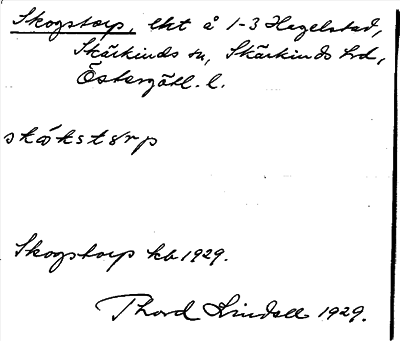 Skogstorp, lht å 1-3 Hagelstad,
Skärkinds sn, Skärkinds hd,
Östergötl. l.
Skogstorp kb 1929.
Thord Lindell 1929.